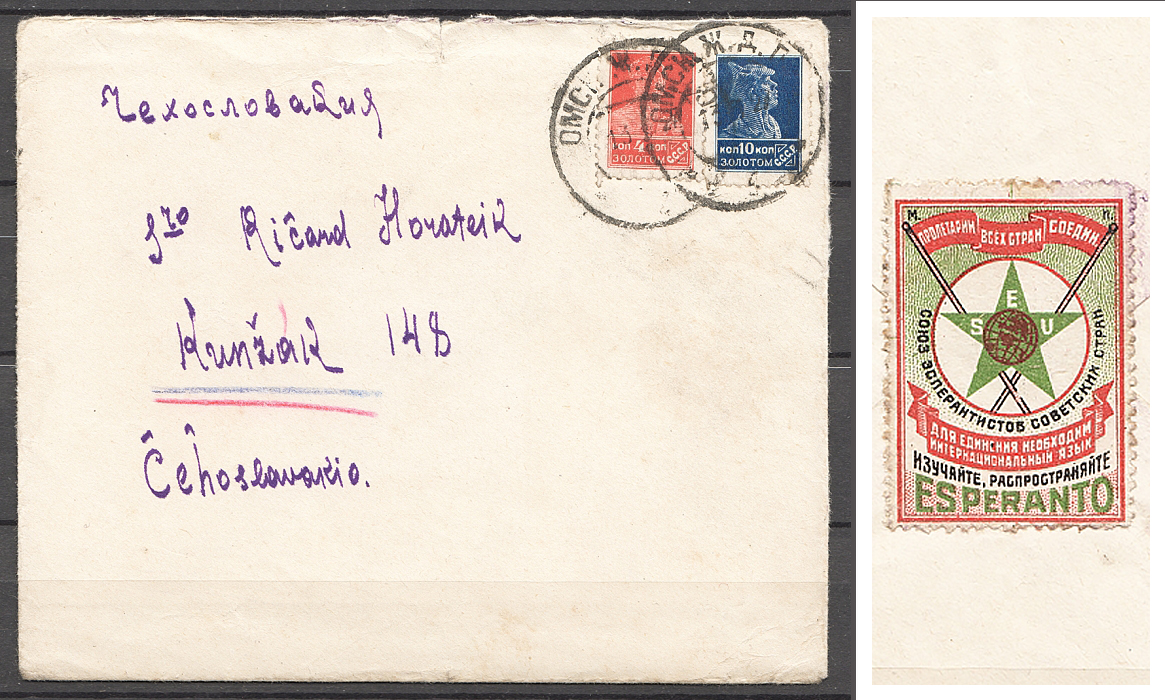 Чехословакия
s-ro Ričard Horateik
Kunžak 148
Ĉeĥoslavakio.
ОМСК Ж.
ОМСК Ж.Д.П.
КОП 4 КОП
ЗОЛОТОМ
СССР
КОП 10 КОП
ЗОЛОТОМ
СССР
М. П.
ПРОЛЕТАРИИ ВСЕХ СТРАН СОЕДИН
E
S U
СОЮЗ ЭСПЕРАНТИСТОВ СОВЕТСКИХ СТРАН
ДЛЯ ЕДИНЕНИЯ НЕОБХОДИМ
ИНТЕРНАЦИОНАЛЬНЫЙ ЯЗЫК
ИЗУЧАЙТЕ, РАСПРОСТРАНЯЙТЕ
ESPERANTO